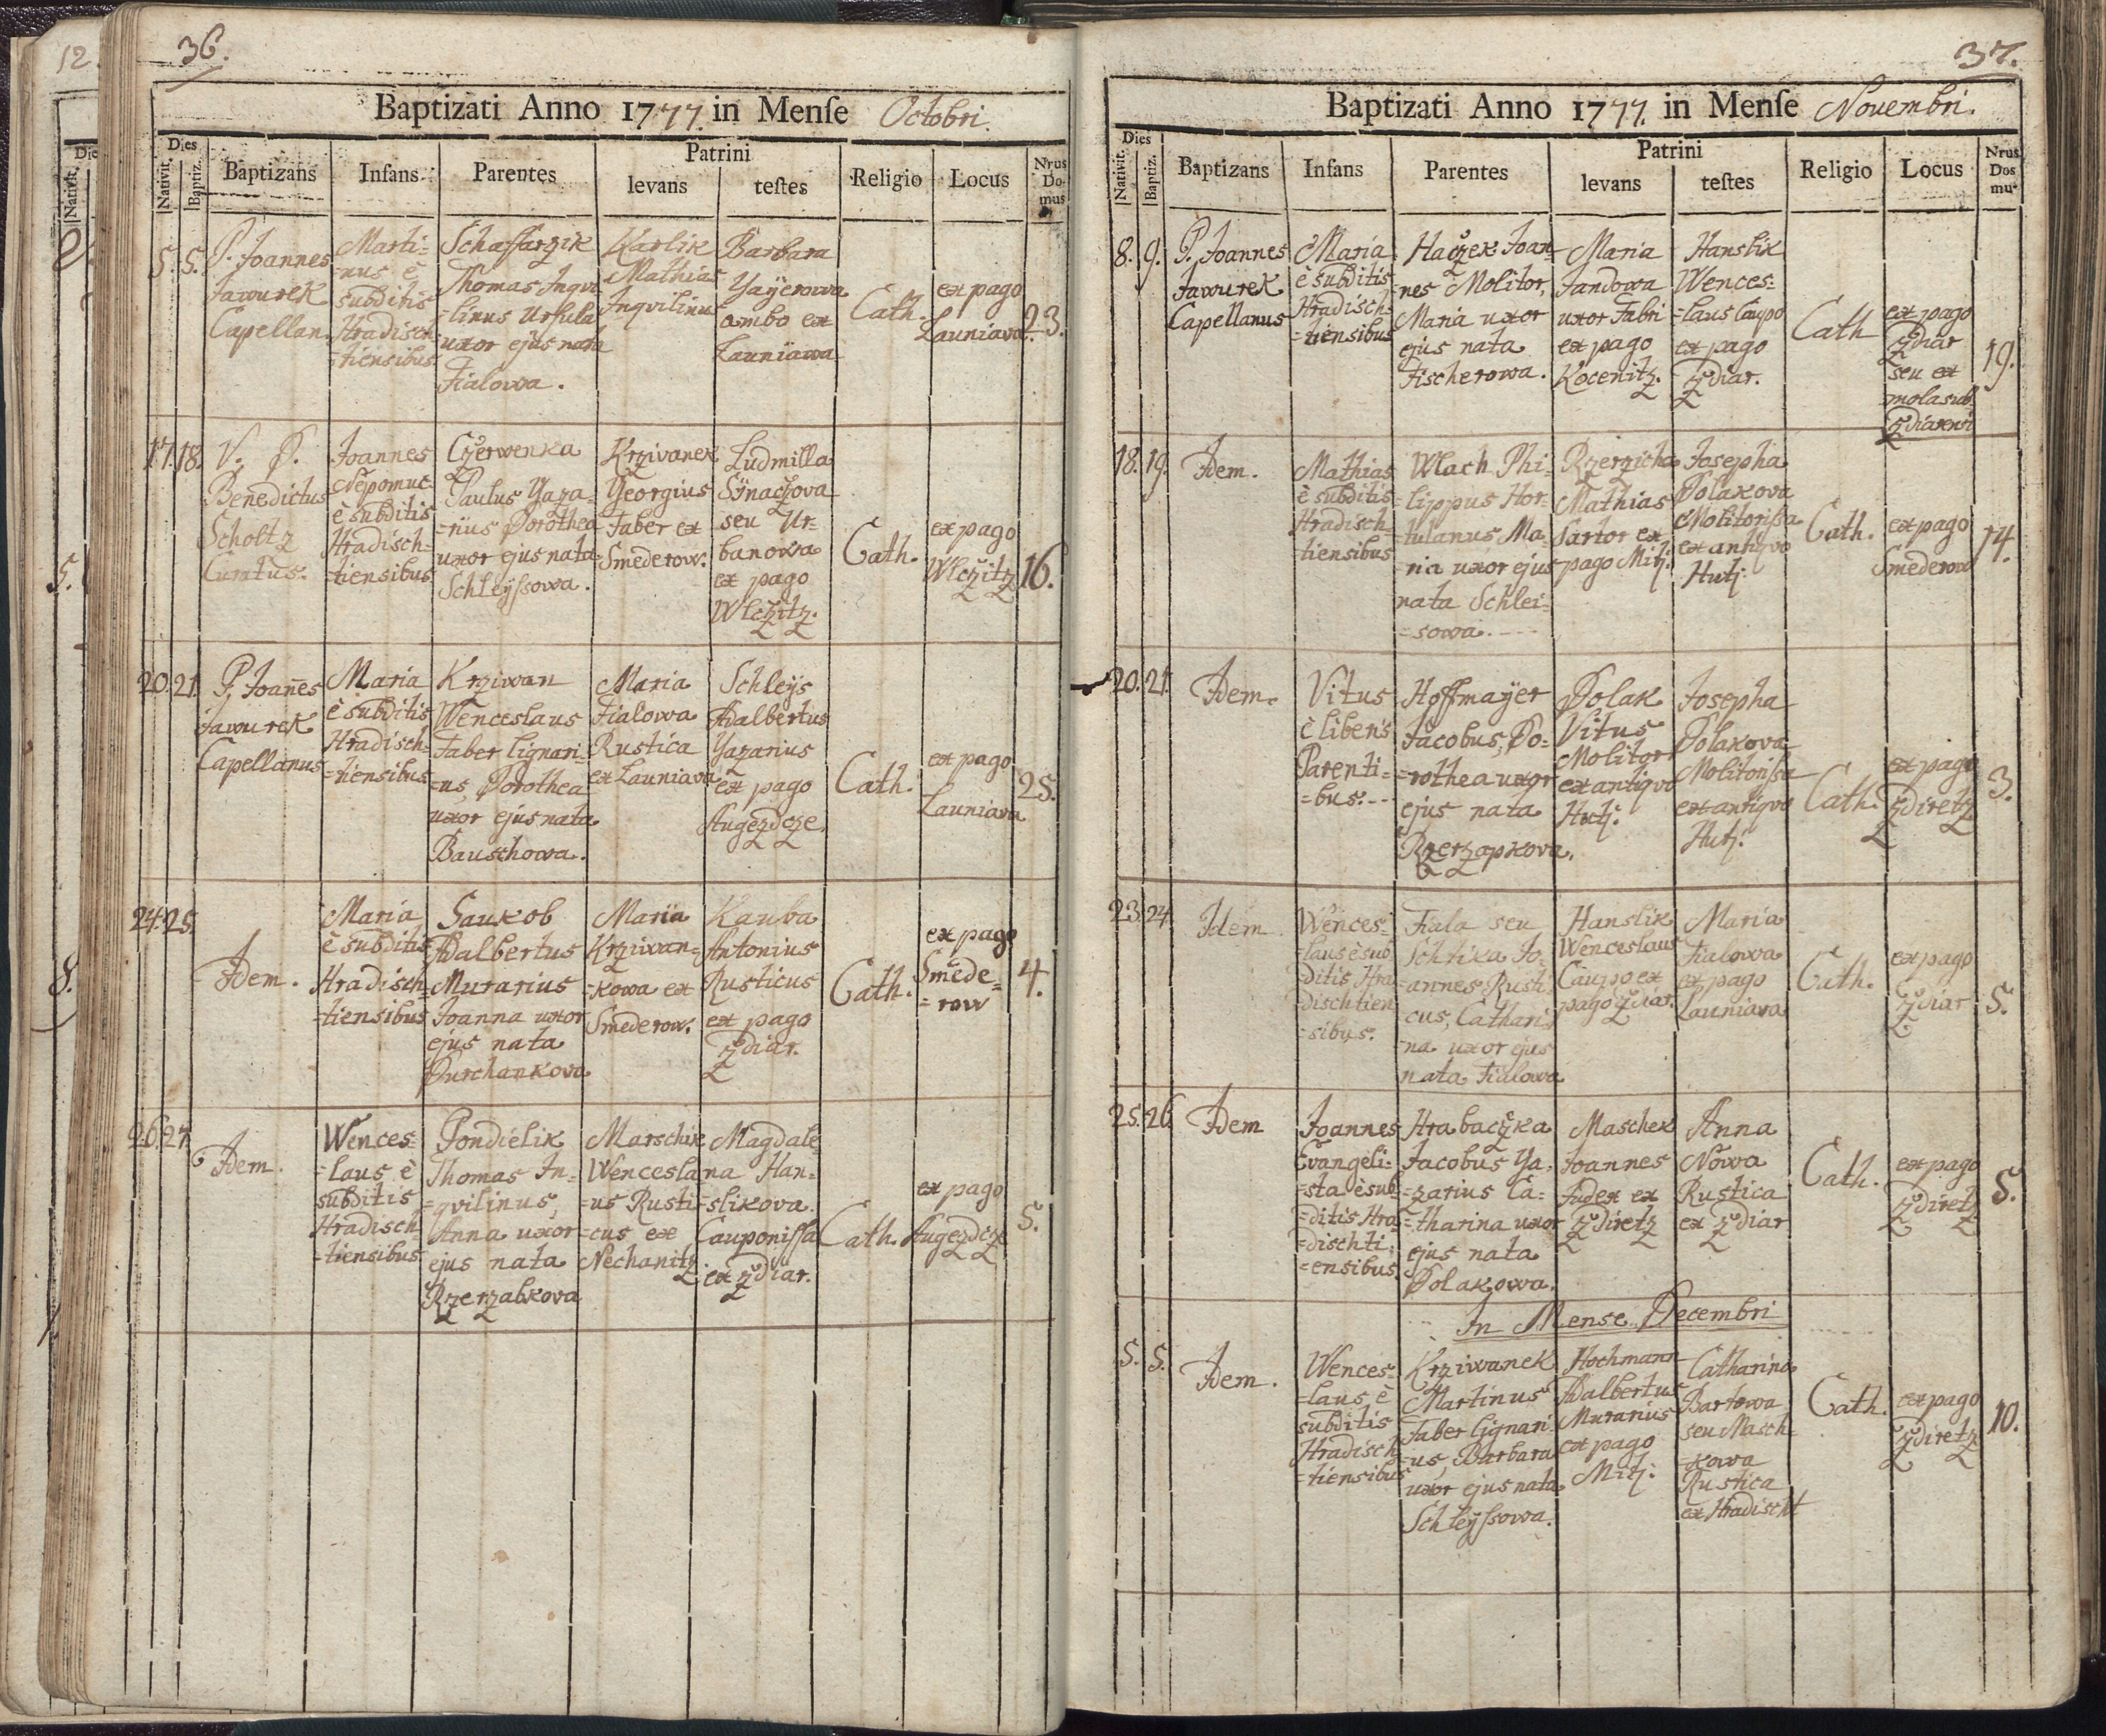 12.
36.
Baptizati Anno 1777. in Menſe Octobri.
Dies
Nativit.
Baptiz.
Baptizans
Infans
Parentes
Patrini
levans
teſtes
Religio
Locus
Nrus
Do-
mus
5.
5.
P. Joannes
Jawurek
Capellan.
Marti=
=nus è
subditis
Hradisch
=tiensibus
Schaffarzik
Thomas Inqvi
=linus Ursula
uxor ejus nata
Fialowa.
Karlik
Mathias
Inqvilinus
Barbara
Yayerowa
ambo ex
Launiawa
Cath.
ex pago
Launiava.
23.
17.
18.
V. P.
Benedictus
Scholtz
Curatus.
Joannes
Nepomuc=
è subditis
Hradisch=
tiensibus
Czerwenka
Paulus Yaza=
=rius Dorothea
uxor ejus nata
Schleyssowa.
Krzivanek
Georgius
Faber ex
Smederow.
Ludmilla
Synaczova
seu Ur=
banowa
ex pago
Wlczitz.
Cath.
ex pago
Wlczitz
16.
20.
21.
P. Joañes
Jawurek
Capellanus
Maria
è subditis
Hradisch=
=tiensibus
Krziwan
Wenceslaus
Faber lignari=
=us, Dorothea
uxor ejus nata
Bauschowa.
Maria
Fialowa
Rustica
ex Launiava
Schleys
Adalbertus
Yazarius
ex pago
Augezdcze.
Cath.
ex pago
Launiava
25.
24.
25.
Idem.
Maria
è subditis
Hradisch=
=tiensibus
Saukob
Adalbertus
Murarius
Joanna uxor
ejus nata
Durchankova
Maria
Krziwan=
=kowa ex
Smederow.
Kauba
Antonius
Rusticus
ex pago
Zdiar.
Cath.
ex pago
Smede=
=row
4.
26.
27.
Idem.
Wences=
=laus è
subditis
Hradisch
=tiensibus
Pondielik
Thomas In=
=qvilinus,
Anna uxor
ejus nata
Rzerzabkova
Marschik
Wencesla
=us Rusti
=cus ex
Nechanitz
Magdale
na Han=
=slikova
Cauponissa
ex Zdiar.
Cath.
ex pago
Augezdcze
5.
37.
Baptizati Anno 1777. in Menſe Novembri.
Dies
Nativit.
Baptiz.
Baptizans
Infans
Parentes
Patrini
levans
teſtes
Religio
Locus
Nrus
Dos
mu-
8.
9.
P. Joannes
Jawurek
Capellanus
Maria
è subditis
Hradisch=
=tiensibus
Haczek Joan=
=nes Molitor,
Maria uxor
ejus nata
Fischerowa.
Maria
Jandowa
uxor Fabri
ex pago
Kocenitz.
Hanslik
Wences=
=laus Caupo
ex pago
Zdiar.
Cath
ex pago
Zdiar
seu ex
mola sub
Zdiarensi
19.
18.
19.
Idem.
Mathias
è subditis
Hradisch=
tiensibus
Wlach Phi=
=lippus Hor=
=tulanus, Ma=
ria uxor ejus
nata Schlei=
=sowa.
Rzerzicha
Mathias
Sartor ex
pago Mitj.
Josepha
Polakova
Molitorissa
ex antiqvo
Hutj.
Cath.
ex pago
Smederow
14.
20.
21.
Idem.
Vitus
è liberis
Parenti=
=bus.
Hoffmayer
Jacobus, Do=
=rothea uxor
ejus nata
Rzerzapkova.
Polak
Vitus
Molitor
ex antiqvo
Hutj.
Josepha
Polakova
Molitorissa
ex antiqvo
Hutj.
Cath.
ex pago
Zdiretz
3.
23.
24.
Idem
Wences=
=laus è sub
=ditis Hra
=dischtien
=sibus.
Fiala seu
Schtika Jo=
=annes Rusti=
cus, Cathari=
=na uxor ejus
nata Fialowa
Hanslik
Wenceslaus
Caupo ex
pago Zdiar.
Maria
Fialowa
ex pago
Launiava
Cath.
ex pago
Zdiar
5.
25.
26.
Idem
Joannes
Evangeli=
=sta è sub
=ditis Hra=
=dischti=
=ensibus.
Hrabaczka
Jacobus Ya=
=zarius Ca=
=tharina uxor
ejus nata
Polakowa.
Maschek
Joannes
Judex ex
Zdiretz
Anna
Nowa
Rustica
ex Zdiar
Cath.
ex pago
Zdiretz
5.
In Mense Decembri
5.
5.
Idem.
Wences=
=laus è
subditis
Hradisch
=tiensibus
Krziwanek
Martinus
Faber lignari=
=us, Barbara
uxor ejus nata
Schleyssowa.
Hochmann
Adalbertus
Murarius
ex pago
Mitj.
Catharina
Bartowa
seu Masch=
=kowa
Rustica
ex Hradischt
Cath.
ex pago
Zdiretz
10.